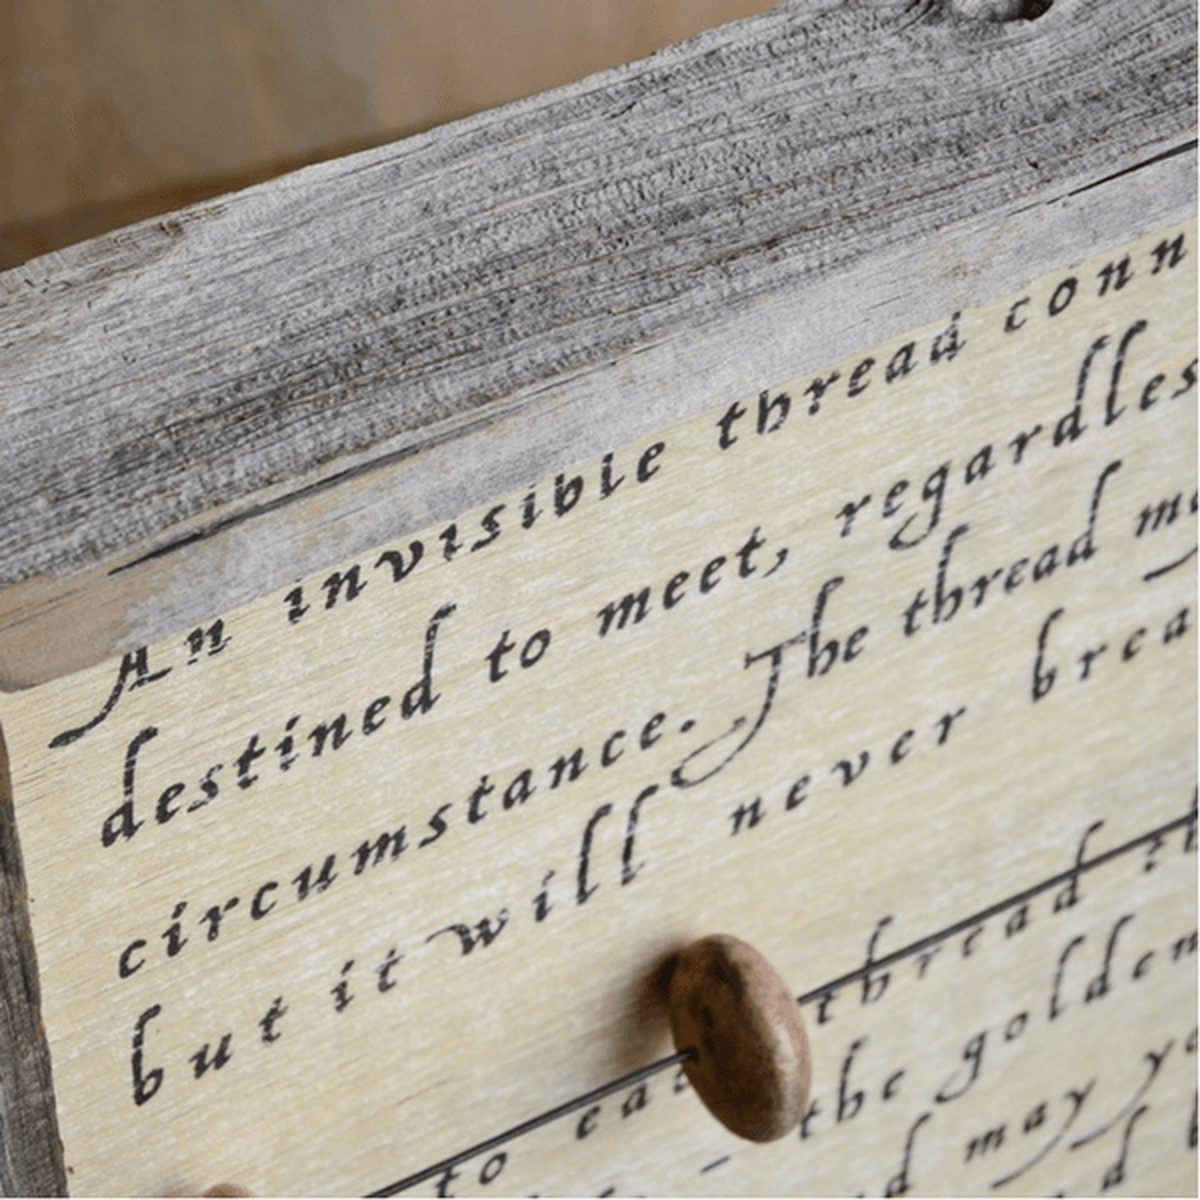 An invisible thread conn
destined to meet, regardles
circumstance. The thread m
but it will never brea
thread
to the golden
may